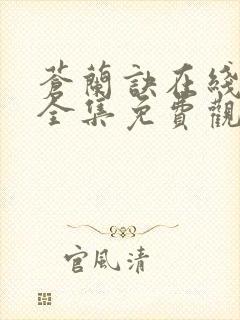 蒼蘭訣在綫
全集免費觀
官風清